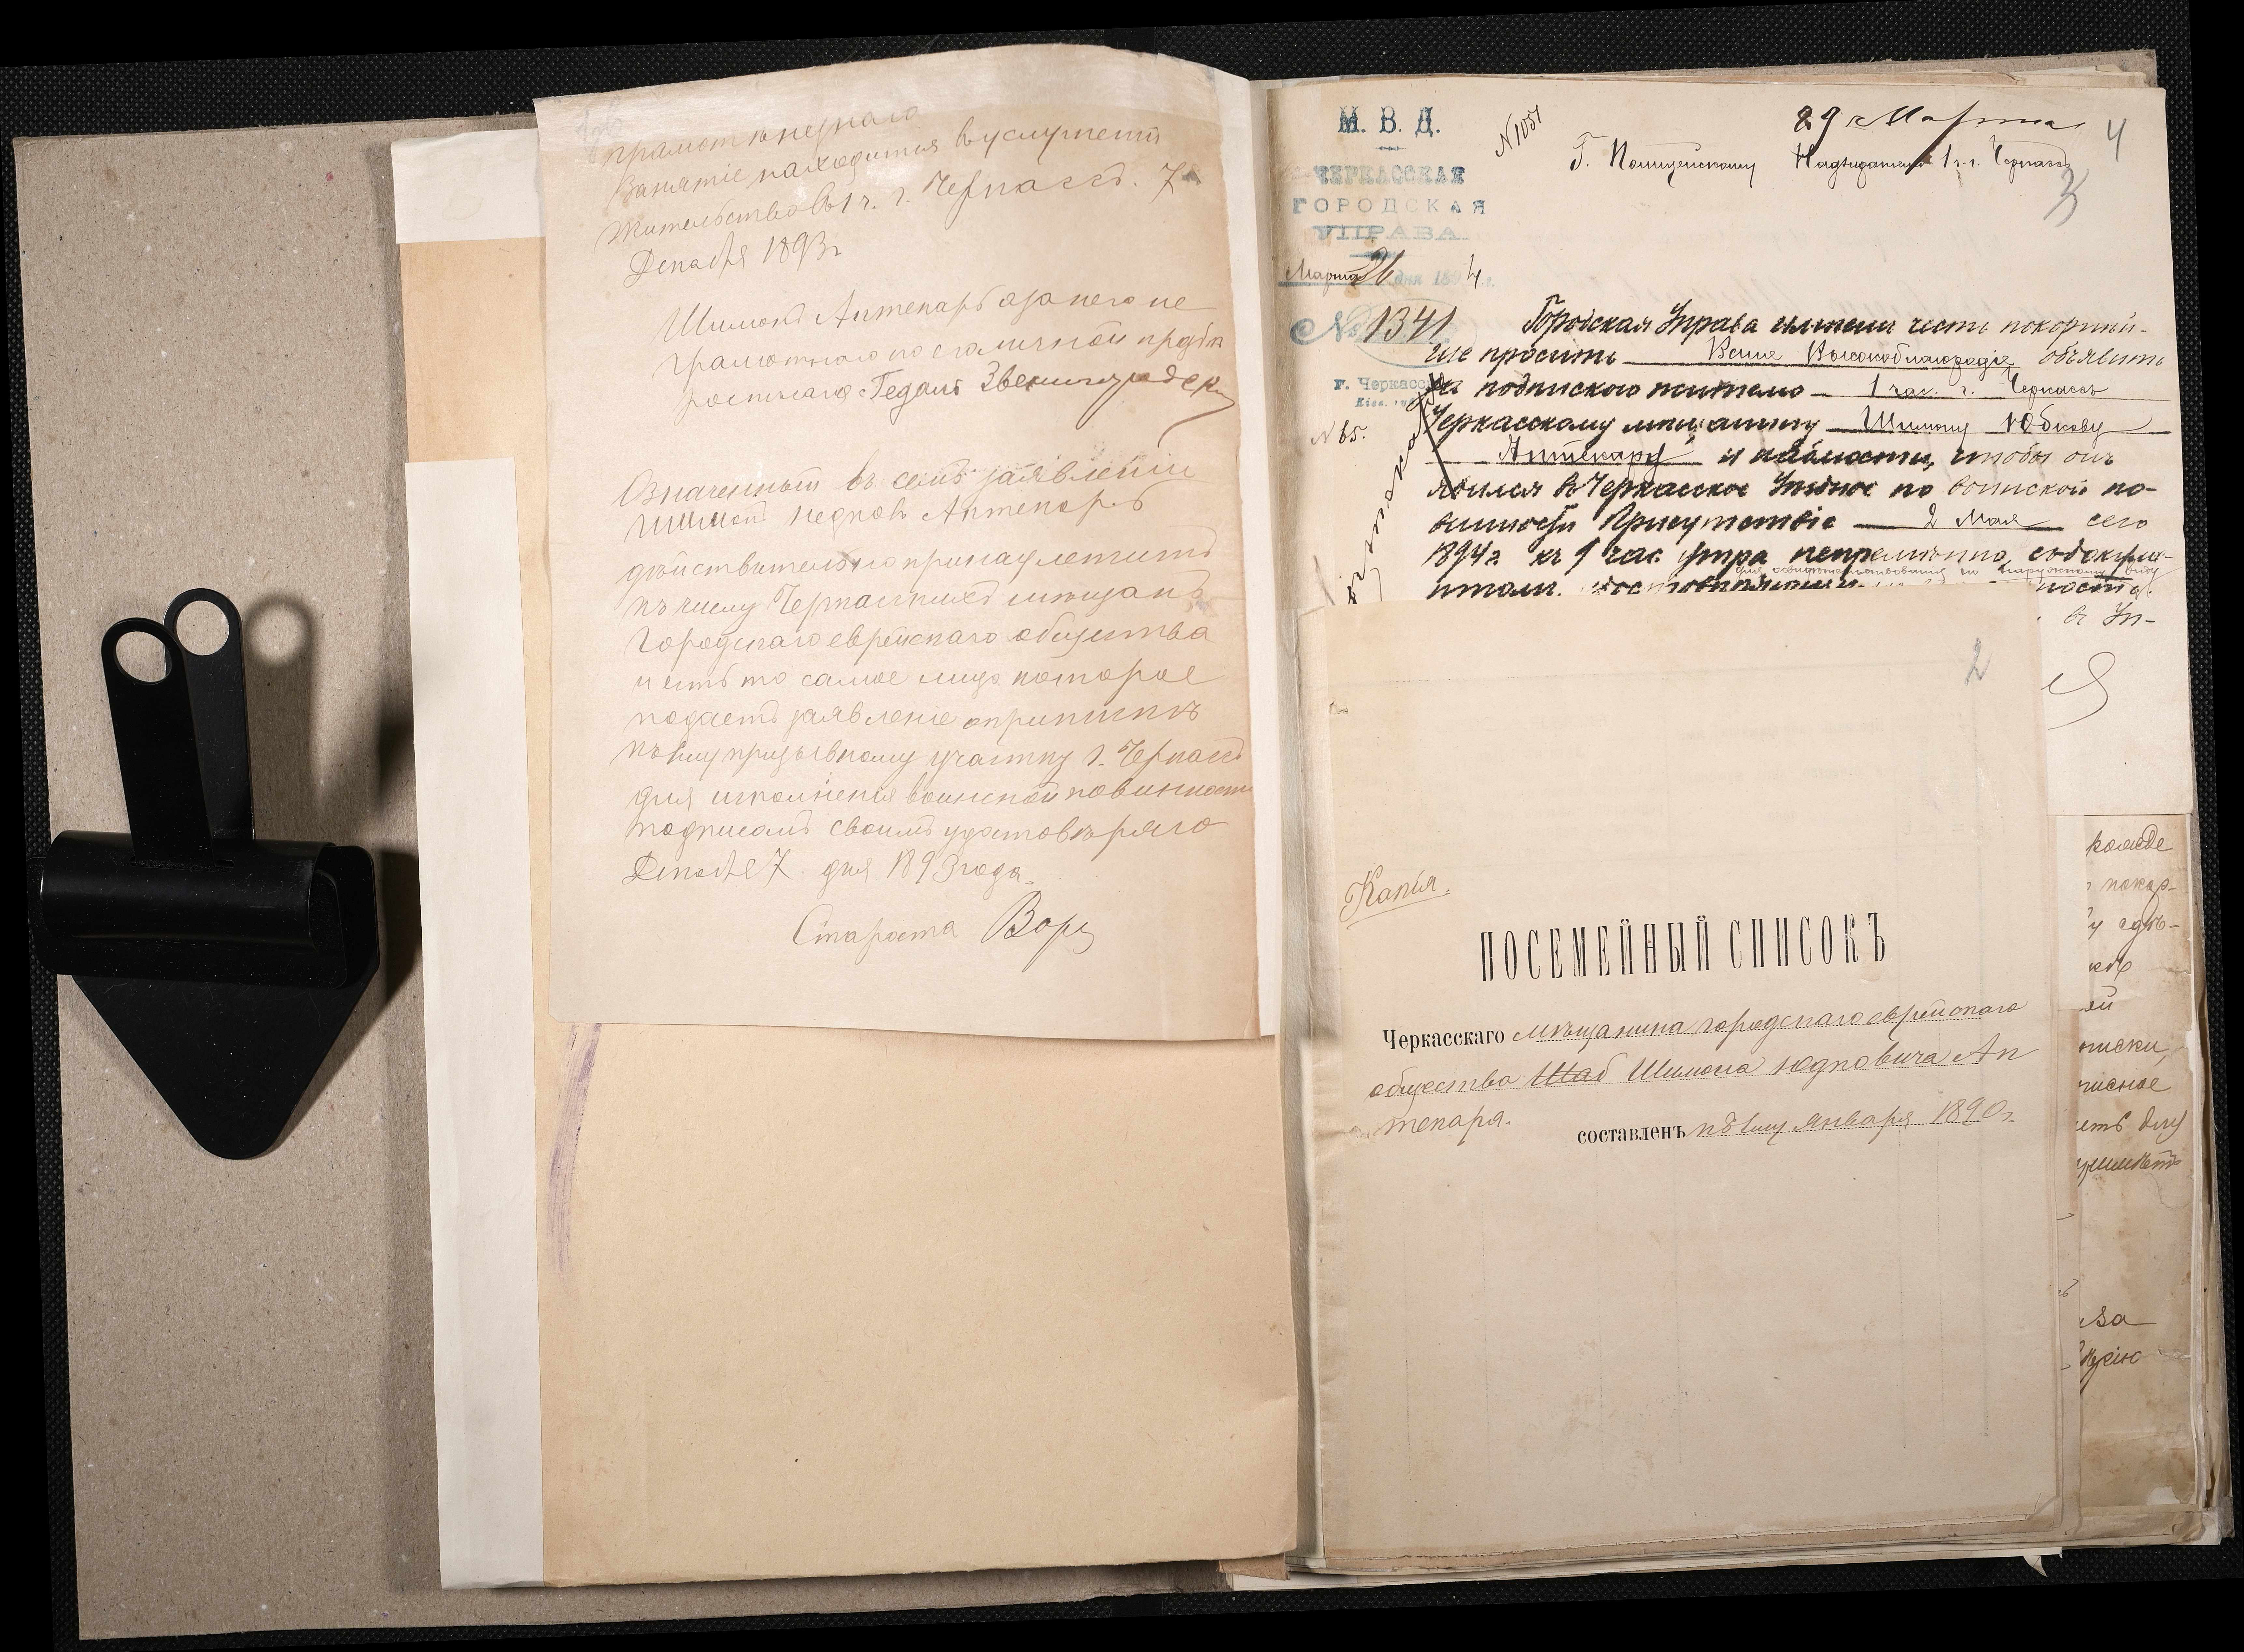 грамотъ не знаго
Занятіе находится в услуженіи
Жительство въ 1 ч. г. Черкассъ. 7
Декабря 1893 г
Шимонъ Аптекарь а за него не
грамотнаго по его личной прозьбѣ
росписался Гедаль Звенигородск
Означенный въ семъ заявленіи
Шимонъ Юдковъ Аптекарь
дѣйствительно принадлежитъ
къ числу Черкасскихъ мѣщанъ
Городскаго еврейскаго общества
и есть то самое лицо которое
подаетъ заявленіе о припискѣ
къ 1му призывному участку г. Черкассъ
для исполненія воинской повинности
подписомъ своимъ удостовѣряю
Декабря 7 дня 1893 года.
Староста
М. В. Д.
ЧЕРКАССКАЯ
ГОРОДСКАЯ
УПРАВА.
Марта 26 дня 1894 г.
№ 1341
г. Черкассы
№ 65.
№ 1051
29 Марта
4
Г. Полицейскому Надзирателю 1 ч. г. Черкассъ
3
Городская Управа имѣетъ честь покорнѣй-
ше просить Ваше Высокоблагородіе объявить
съ подпискою жителю 1 час. г. Черкассъ
Черкасскому мѣщанину Шимону Юдкову
Аптекарю и чтобы онъ
явился въ Черкасское Уѣздное по воинской по-
винности Присутствіе 2 Мая сего
1894 г. къ 9 час. утра непремѣнно, съ докуме-
для освидѣтельствованія по наружному виду
нтами
ности.
въ Уп-
2
Копія.
ПОСЕМЕЙНЫЙ СПИСОКЪ
Черкасскаго мѣщанина городскаго еврейскаго
общества Шаб Шимона Юдковича Ап
текаря.
составленъ къ 1му января 1890 г.
покор-
писки,